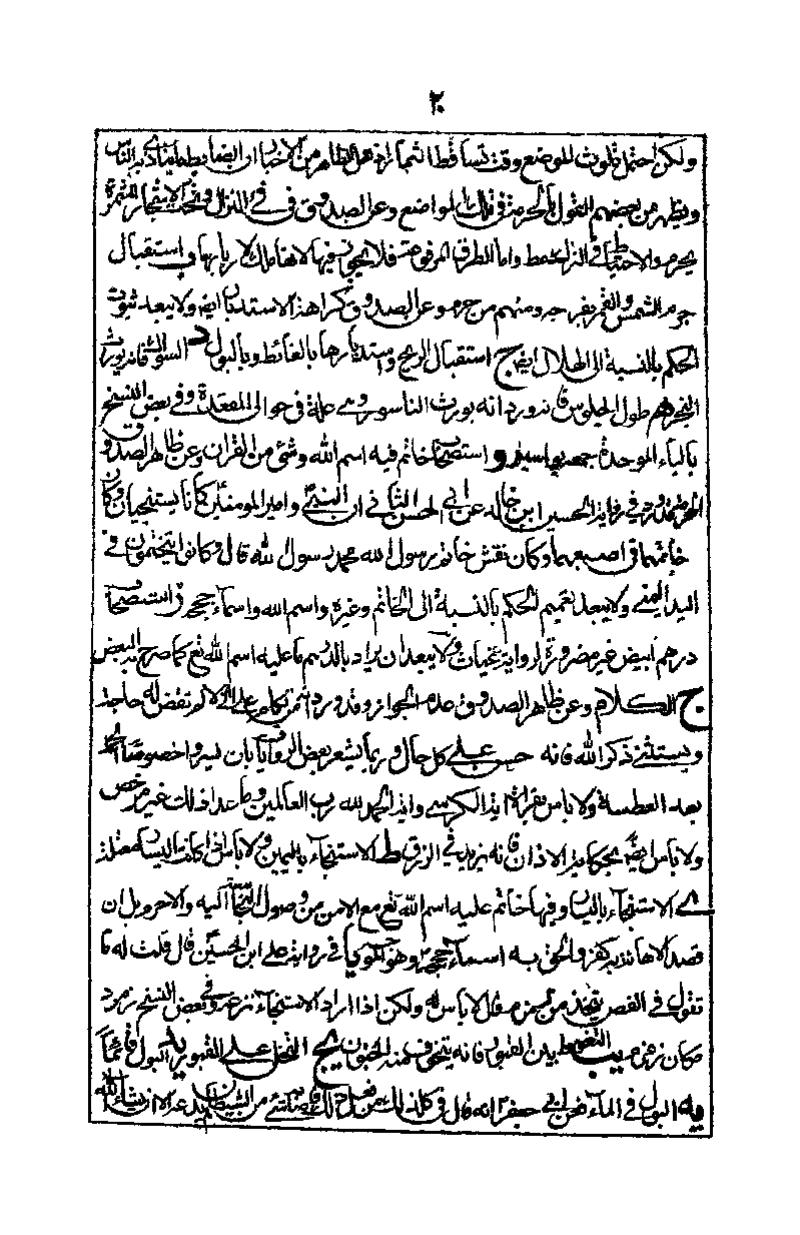 ٢٠
ولكن احتمل تلوث الموضع وقت تساقط الثمار اذ هي الظاهر من الاخبار ان الضابط ما يتأذى به الناس
ويظهر من بعضهم القول بالحرمة في تلك المواضع وعن الصدوق في في النزال وتحت الاشجار المثمرة
يحرم والاحتياط في النزال حفظ واما الطرق المرفوعة فلا يجوز فيها الا مع الملك لاربابها استقبال
جرم الشمس والقمر بفرجه ومنهم من حرمه وعن الصدوق كراهة الاستدبار ايضا ولا يبعد ثبوت
الحكم بالنسبة الى الهلال ايضا ج استقبال الريح واستدبارها بالغائط وبالبول د السواك فانه يورث
البخر هم طول الجلوس فانه ورد انه يورث الناسور وهي علة في حوالي المقعدة وفي بعض النسخ
بالباء الموحدة جمعه بواسير و استصحاب خاتم فيه اسم الله وشئ من القران وعن ظاهر الصدوق
في رواية الحسين ابن خالد عن ابي الحسن الثاني ان النبي وامير المومنين كانا يستنجيان وكان
خاتمهما في اصبعهما وكان نقش خاتم رسول الله محمد رسول الله قال وكانوا يتختمون في
اليد اليمنى ولا يبعد تعميم الحكم بالنسبة الى الخاتم وغيره واسم الله واسماء حججه ز استصحاب
درهم ابيض غير مصرورة لرواية غياث ولا يبعد ان يراد بالدرهم ما عليه اسم الله تع كما صرح به البعض
ح الكلام وعن ظاهر الصدوق عدم الجواز وقد ورد ان من تكلم على الخلاء لم تقض له حاجة
ويستثنى ذكر الله فانه حسن على كل حال وربما يشعر بعض الروايات بان يسر واخصوصا الحمد
بعد العطسة ولا باس بقراءة اية الكرسي واية الحمد لله رب العالمين وما عدا ذلك غير مرخص
ولا باس ايضا بحكاية الاذان فانه يزيد في الرزق ط الاستنجاء باليمين ولا باس اذا كانت اليسار معتلة
ى الاستنجاء باليسار وفيها خاتم عليه اسم الله تع مع الامن من وصول النجاسة اليه والا حرم بل ان
قصد الاهانة به كفر والحق به اسماء حججه وهو المروي في رواية علي ابن الحسين قال قلت له ما
تقول في الفص يتخذ من زمزم قال لا باس به ولكن اذا اراد الاستنجاء نزعه وفي بعض النسخ زمرد
مكان زمزم يب التغوط بين القبور فانه يتخوف منه الجنون يج التخلي على القبور يد البول قائما
يه البول في الماء فعن ابي جعفر انه قال من فعل ذلك فاصابه شئ من الشيطان لم يدعه الا ان يشاء الله